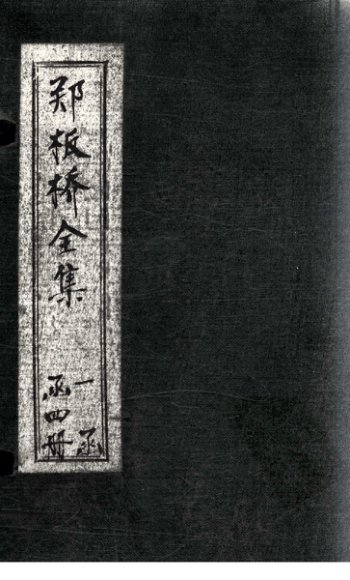 郑板桥全集
一函
函四册